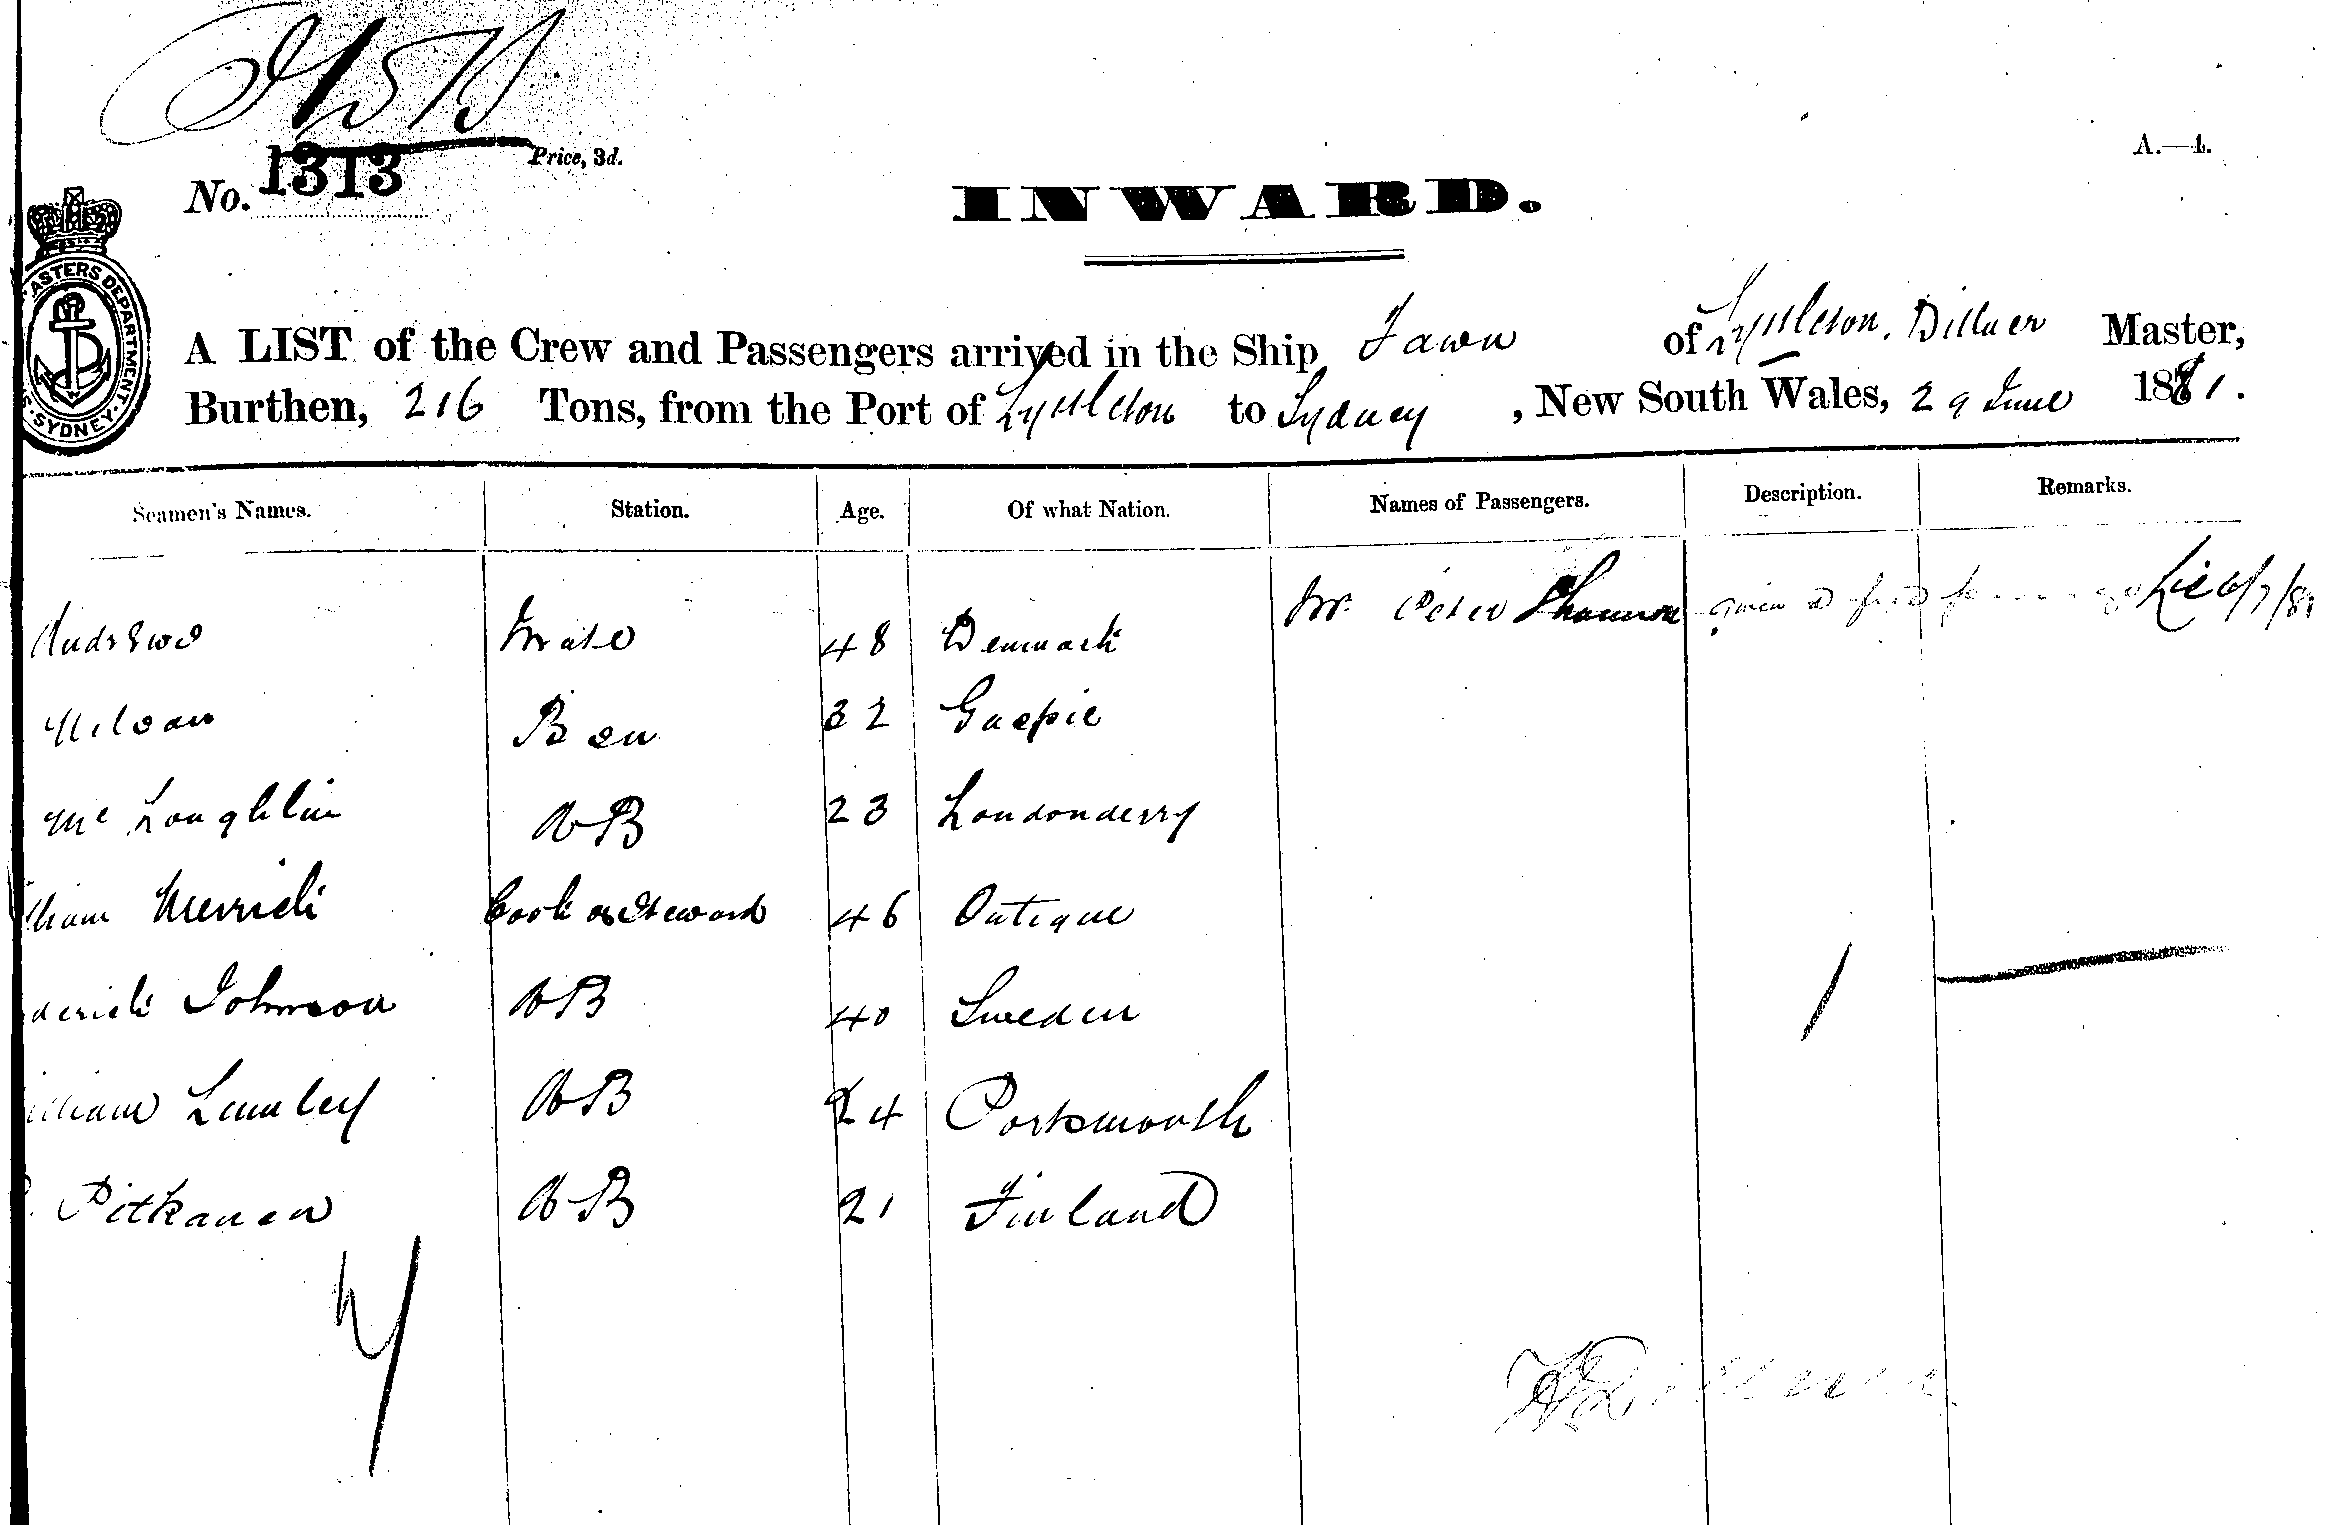 Price, 3d.
No. 1313
A.—4.
INWARD.
ASTERS DEPARTMENT. SYDNEY.
A LIST of the Crew and Passengers arrived in the Ship Fawn of Lyttleton, Master,
Burthen, 216 Tons, from the Port of Lyttleton to Sydney, New South Wales, 29 June 1881.
Seamen's Names. Station. Age. Of what Nation. Names of Passengers. Description. Remarks.
Andrews Mate 48 Denmark Mr Peter Shannon
Nilson Bsn 32 Gaspie
Mc Loughlin AB 23 Londonderry
lliam Merrick Cook & Steward 46 Antigue
derick Johnson AB 40 Sweden
illiam Lumley AB 24 Portsmouth
Pitkanen AB 21 Finland